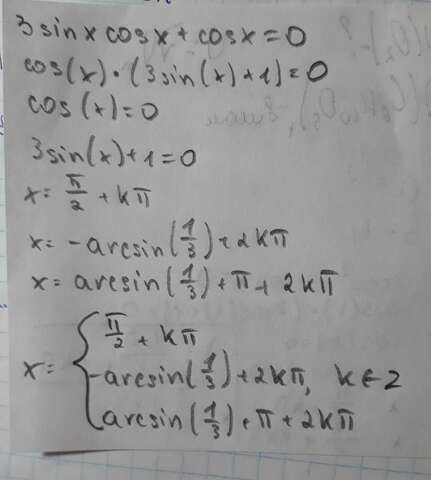 3 sin x cos x + cos x = 0
cos(x) · (3 sin(x) + 1) = 0
cos(x) = 0
3 sin(x) + 1 = 0
x = π/2 + kπ
x = - arcsin(1/3) + 2kπ
x = arcsin(1/3) + π + 2kπ
x = { π/2 + kπ
-arcsin(1/3) + 2kπ, k ∈ Z
arcsin(1/3) + π + 2kπ